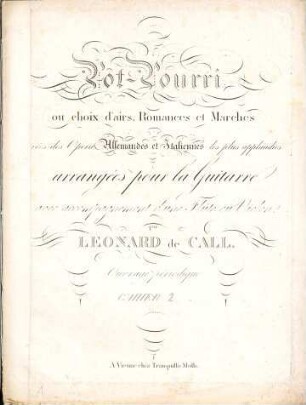 Pot-Pourri
ou choix d'airs, Romances et Marches
tirés des Opera Allemandes et Italiennes les plus applaudies
arrangées pour la Guitarre
avec accompagnement d'une Flûte ou Violon
par
LEONARD de CALL.
Ouvrage périodique
CAHIER 2
A Vienne chez Tranquillo Mollo.